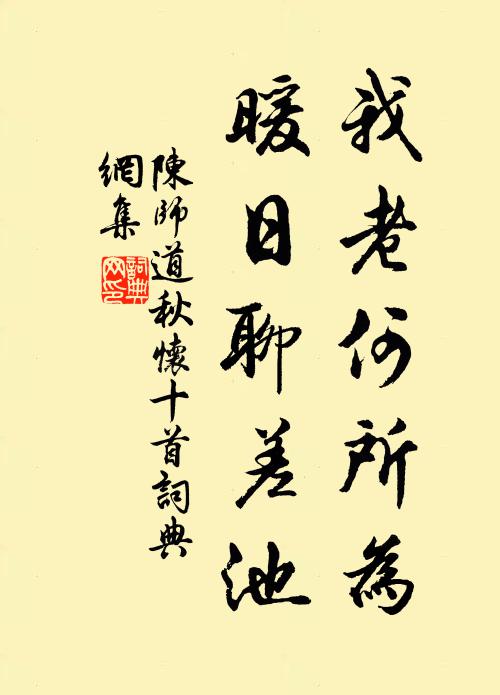 我老何所為
暖日聊差池
陳師道秋懷十首詞典
網集
詞典
网印